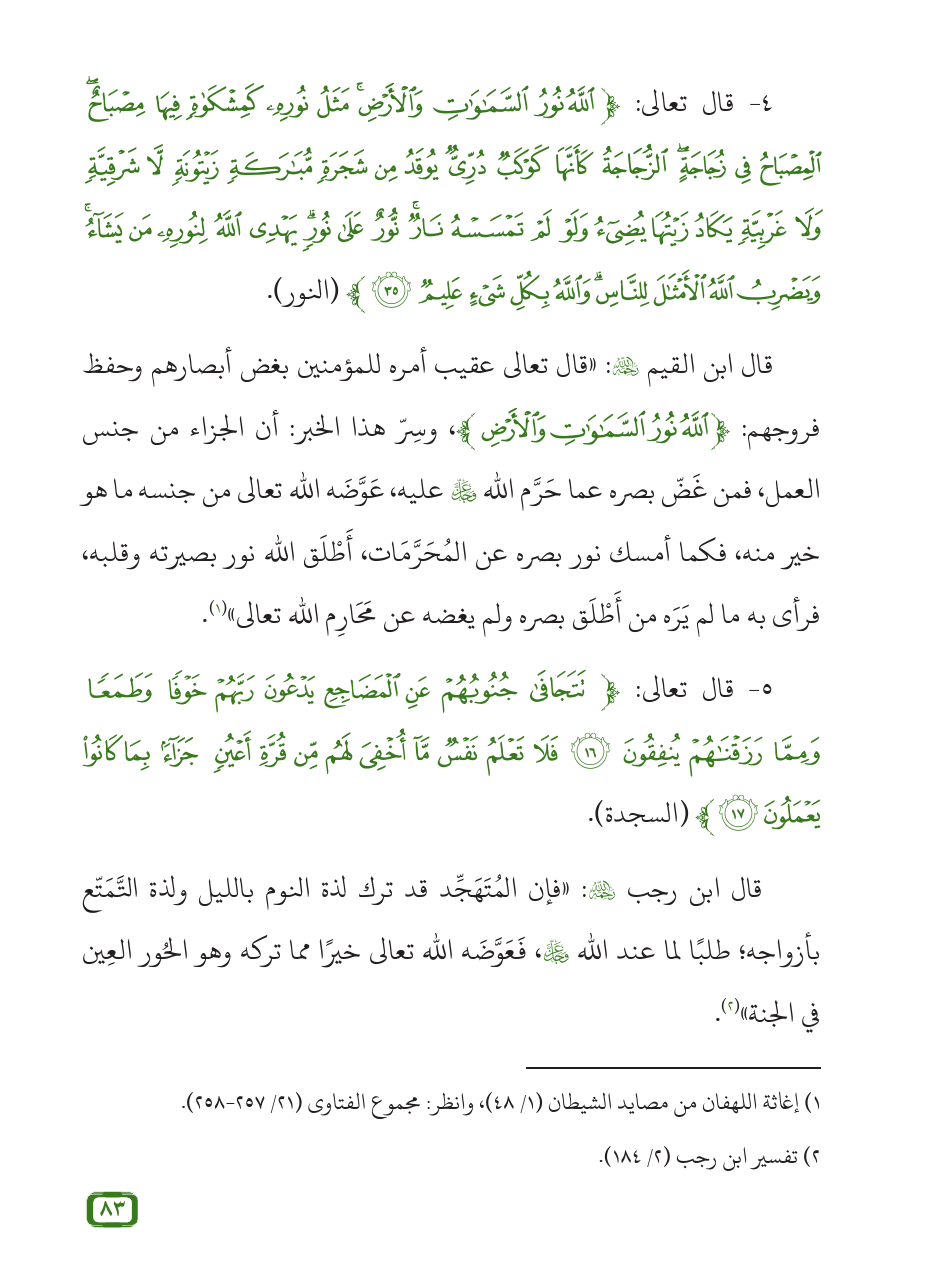 ٤- قال تعالى: ﴿ ٱللَّهُ نُورُ ٱلسَّمَٰوَٰتِ وَٱلْأَرْضِۚ مَثَلُ نُورِهِۦ كَمِشْكَوٰةٖ فِيهَا مِصْبَاحٌۖ
ٱلْمِصْبَاحُ فِي زُجَاجَةٍۖ ٱلزُّجَاجَةُ كَأَنَّهَا كَوْكَبٞ دُرِّيّٞ يُوقَدُ مِن شَجَرَةٖ مُّبَٰرَكَةٖ زَيْتُونَةٖ لَّا شَرْقِيَّةٖ
وَلَا غَرْبِيَّةٖ يَكَادُ زَيْتُهَا يُضِيٓءُ وَلَوْ لَمْ تَمْسَسْهُ نَارٞۚ نُّورٌ عَلَىٰ نُورٖۗ يَهْدِي ٱللَّهُ لِنُورِهِۦ مَن يَشَآءُۚ
وَيَضْرِبُ ٱللَّهُ ٱلْأَمْثَٰلَ لِلنَّاسِۗ وَٱللَّهُ بِكُلِّ شَيْءٍ عَلِيمٞ ٣٥ ﴾ (النور).
قال ابن القيم رحمه الله: «قال تعالى عقيب أمره للمؤمنين بغض أبصارهم وحفظ
فروجهم: ﴿ ٱللَّهُ نُورُ ٱلسَّمَٰوَٰتِ وَٱلْأَرْضِ ﴾، وسِرّ هذا الخبر: أن الجزاء من جنس
العمل، فمن غَضّ بصره عما حَرَّم الله عز وجل عليه، عَوَّضَه الله تعالى من جنسه ما هو
خير منه، فكما أمسك نور بصره عن المُحَرَّمَات، أَطْلَق الله نور بصيرته وقلبه،
فرأى به ما لم يَرَه من أَطْلَق بصره ولم يغضه عن مَحَارِم الله تعالى»(١).
٥- قال تعالى: ﴿ تَتَجَافَىٰ جُنُوبُهُمْ عَنِ ٱلْمَضَاجِعِ يَدْعُونَ رَبَّهُمْ خَوْفٗا وَطَمَعٗا
وَمِمَّا رَزَقْنَٰهُمْ يُنفِقُونَ ١٦ فَلَا تَعْلَمُ نَفْسٞ مَّآ أُخْفِيَ لَهُم مِّن قُرَّةِ أَعْيُنٖ جَزَآءَۢ بِمَا كَانُوا۟
يَعْمَلُونَ ١٧ ﴾ (السجدة).
قال ابن رجب رحمه الله: «فإن المُتَهَجِّد قد ترك لذة النوم بالليل ولذة التَّمَتّع
بأزواجه؛ طلبًا لما عند الله عز وجل، فَعَوَّضَه الله تعالى خيرًا مما تركه وهو الحُور العِين
في الجنة»(٢).
١) إغاثة اللهفان من مصايد الشيطان (١/ ٤٨)، وانظر: مجموع الفتاوى (٢١/ ٢٥٧-٢٥٨).
٢) تفسير ابن رجب (٢/ ١٨٤).
٨٣